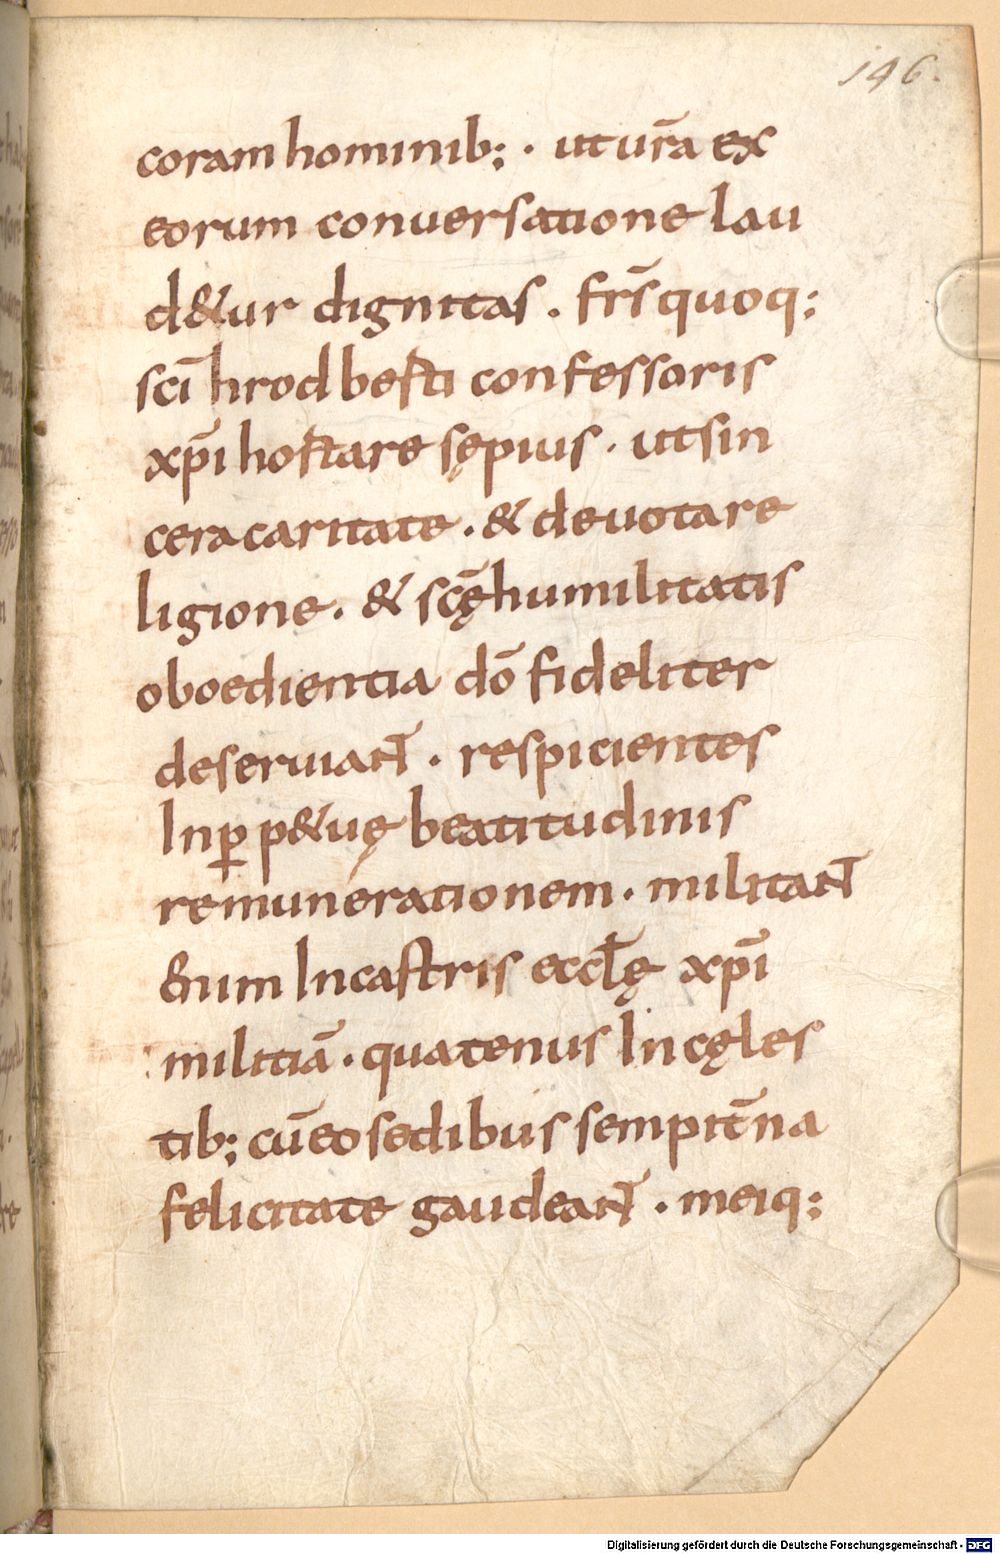 196.
coram hominib; · ut ur̄a ex
eorum conuersatione lau
d&ur dignitas . frs̄ quoq;
scī hrodberti confessoris
xp̄i hortare sępius · ut sin
cera caritate . & deuota re
ligione . & scę̄ humilitatis
oboedientia dō fideliter
deseruiant . respicientes
In ꝑp&uę beatitudinis
remunerationem . militant
enim In castris eccl̄ę xp̄i
militiā . quatenus In cęles
tib; cū eo sedibus sempit̄na
felicitate gaudeant . meiq;
Digitalisierung gefördert durch die Deutsche Forschungsgemeinschaft - DFG